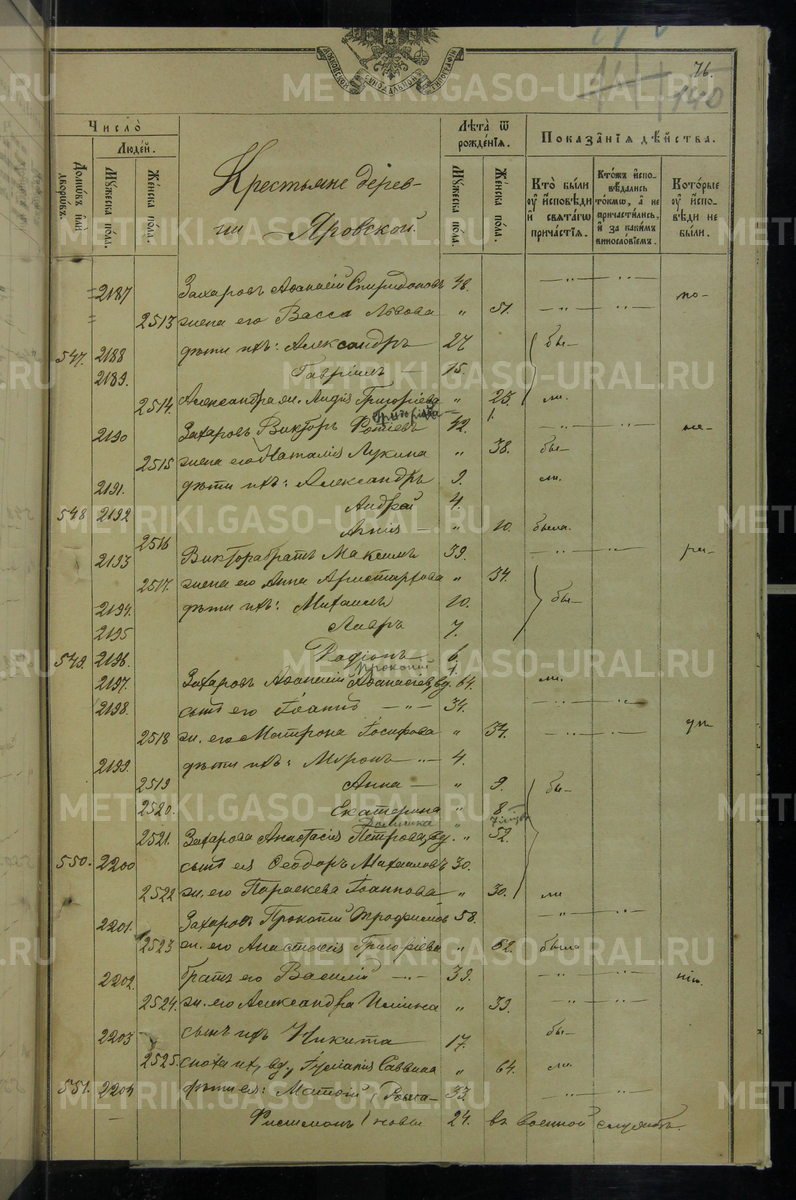 76.
140
METRIKI.GASO-URAL.RU
Число̀
Люде́й.
Домѡ́въ и҆лѝ дворѡ́въ.
Мꙋ́жеска по́ла.
Же́нска по́ла.
Крестьяне дерев-
ни Яровской.
Лѣ̑та ѿ рожде́нїѧ.
Мꙋ́жеска по́ла.
Же́нска по́ла.
Показа̑нїѧ дѣ́йства.
Кто̀ бы́ли оу҆ и҆сповѣди и҆ свѧта́гѡ прича́стїѧ.
Кто́жъ и҆спо-вѣдались то́кмѡ, а҆ не причастились, и҆ за каки́мъ винослόвїемъ.
Кото́рые оу҆ и҆спо-вѣди не бы́ли.
2187 Захаровъ Аѳанасій Спиридоновъ 48.
2513 жена его Васса Львова " 51.
547. 2188 дѣти ихъ: Александръ 27 бы-
2189. Гавріилъ - 15.
2514. Александра ж. Лидія Григоріева " 25. ли.
2190 Захаровъ Викторъ Фотіевъ 42.
2515 жена его Наталія Лукина " 38. бы-
2191. дѣти ихъ: Александръ 9. ли.
548 2192 Андрей 4.
2516 Анна - " 10. была.
2193 Виктора братъ Максимъ 39.
2517. жена его Анна Аристархова " 34.
2194. дѣти ихъ: Михаилъ 10. бы-
2195 Лавръ 7.
549. 2196. Родіонъ 6.
Прокопій 1.
2197. Захаровъ Аѳанасій Аѳанасіевъ, вд. 64. ли.
2198. сынъ его Іоаннъ - " - 34.
2518 ж. его Матрона Іосифова " 34.
2199. дѣти ихъ: Миронъ 4.
2519 Анна - " 9. бы-
2520. Екатерина " 8
2521. Захарова Анастасія Петрова, вд. " 52.
550. 2200 сынъ ея Ѳеодоръ Михаиловъ 30.
2522 ж. его Параскева Іоаннова " 30. ли
2201. Захаровъ Прокопій Трофимовъ 58.
2523 ж. его Анастасія Григоріева " 62. была
2202. братъ его Василій 39.
2524. ж. его Александра Ильина " 39.
2203 сынъ ихъ Никита 17. бы-
2525. сноха ихъ, вд., Іуліанія Саввина " 64. ли
551. 2204 дѣти ея: Матѳій 33
Филимонъ 24. въ военной службѣ.